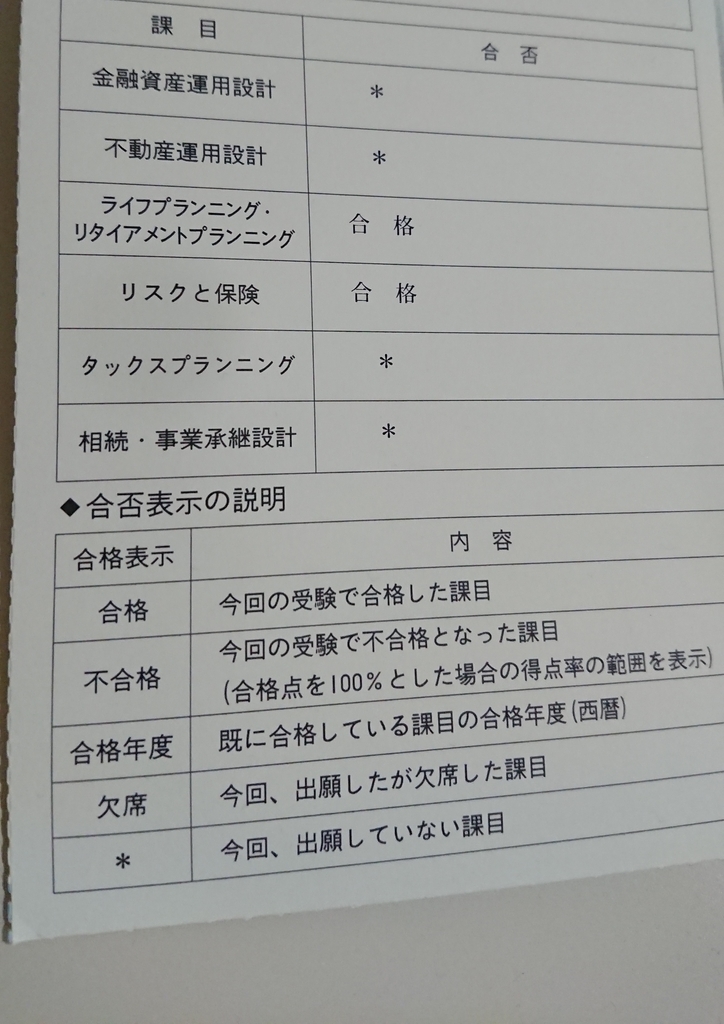 課 目
合 否
金融資産運用設計
*
不動産運用設計
*
ライフプランニング・
リタイアメントプランニング
合 格
リスクと保険
合 格
タックスプランニング
*
相続・事業承継設計
*
◆合否表示の説明
合格表示
内 容
合格
今回の受験で合格した課目
不合格
今回の受験で不合格となった課目
(合格点を100%とした場合の得点率の範囲を表示)
合格年度
既に合格している課目の合格年度(西暦)
欠席
今回、出願したが欠席した課目
*
今回、出願していない課目